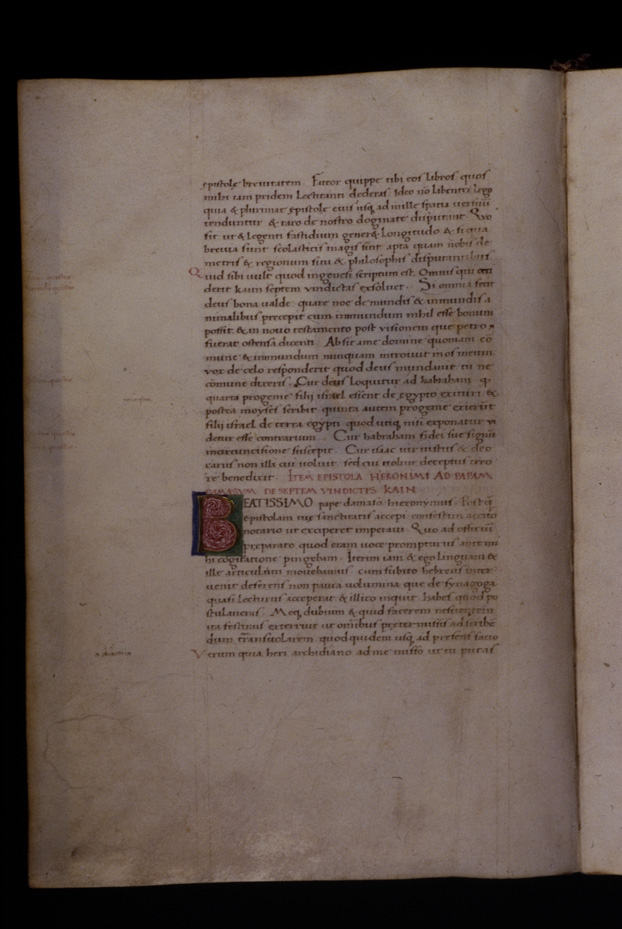 epistole breuitatem. Fateor quippe tibi eos libros quos
mihi iam pridem Lectitanti dederas. Ideo nō libenter lego
quia & plurimae epistole eius usq; ad mille spatia uersuū
tenduntur & raro de nostro dogmate disputant. Quo
fit ut & legenti fastidium generæ longitudo & si qua
breuia sunt scolasticis magis sint apta quam nobis de
metris & regionum situ & philosophis disputantibus
Quid sibi uult quod in genesi scriptum est. Omnis qui occi
derit kain septem uindictas exsoluet. Si omnia fecit
deus bona ualde. quare noe de mundis & inmundis a
nimalibus precepit cum inmundum nihil esse bonum
possit. & in nouo testamento post uisionem que petro
fuerat ostensa dicenti. Absit a me domine quoniam cō
mune & inmundum nunquam introiuit in os meum
uox de celo responderit quod deus mundauit tu ne
cōmune dixeris. Cur deus loquitur ad habraham. qr
quarta progenie filii israel essent de egypto exituri &
postea moyses scribit. quinta autem progenie exierūt
filii israel de terra egypti quod utiq; nisi exponatur ui
detur esse contrarium. Cur habraham fidei sue signū
in circuncisione suscepit. Cur isaac uir iustus & deo
carus non illi cui uoluit. sed cui noluit deceptus erro
re benedixit. ITEM EPISTOLA HIERONIMI AD PAPAM
DAMASUM DE SEPTEM VINDICTIS KAIN
BEATISSIMO pape damaso hieronymus. Postq̄
epistolam tue sanctitatis accepi. confestim accito
notario ut exciperet imperaui. Quo ad officiū
preparato quod eram uoce prompturus ante mi
hi cogitatione pingebam. Iterim iam & ego linguam &
ille articulum mouebamus. cum subito hebreus inter
uenit deferens non pauca uolumina que de synagoga
quasi lecturus acceperat & illico inquit. habes quod po
stulaueras. Meq; dubium & quid facerem nescientem
ita festinus exterruit ut omnibus pretermissis ad scribē
dum trāsuolarem. quod quidem usq; ad presens facio
Verum quia heri archidiano ad me misso ut tu putas